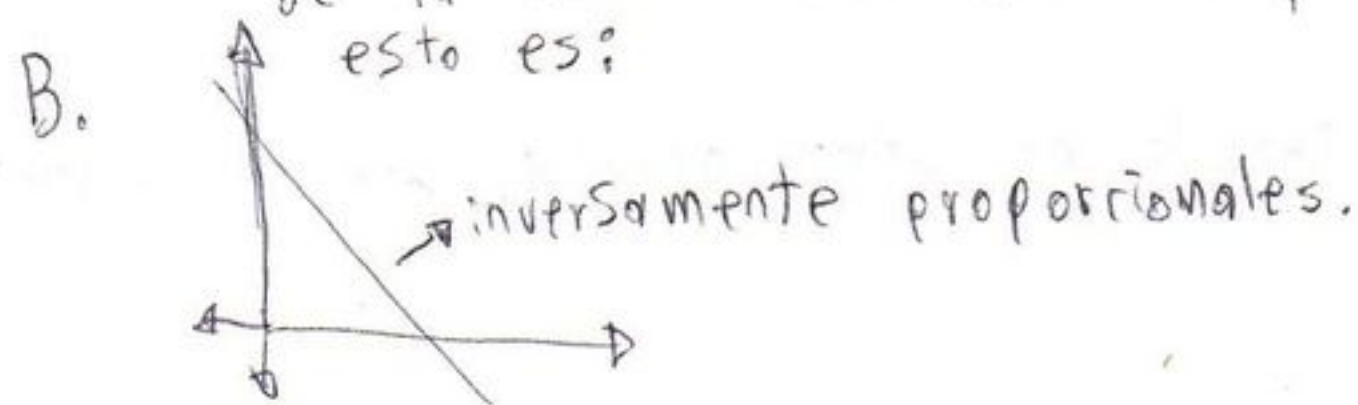 esto es:
B.
inversamente proporcionales.